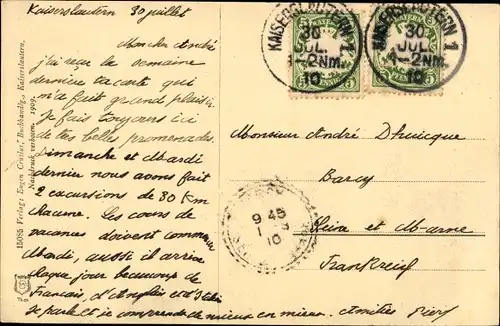 Kaiserslautern 30 juillet
Mon cher André
j'ai reçu la semaine
dernière ta carte qui
m'a fait grand plaisir.
Je fais toujours ici
de très belles promenades
Dimanche et Mardi
dernier nous avons fait
2 excursions de 30 Km
chacune. Les cours de
vacances doivent commencer
Mardi, aussi il arrive
chaque jour beaucoup de
Français, d'Anglais et d'
Je parle et je comprends de mieux en mieux. Amitiés
KAISERSLAUTERN 1
30
JUL.
1-2Nm.
10
KAISERSLAUTERN 1
30
JUL.
1-2Nm.
10
5 BAYERN 5
Monsieur André Dhuicque
Barcy
Seine et Marne
Frankreich
9 45
10
15085 Verlag: Eugen Crusius, Buchhandlg., Kaiserslautern.
Nachdruck verboten. 1909.